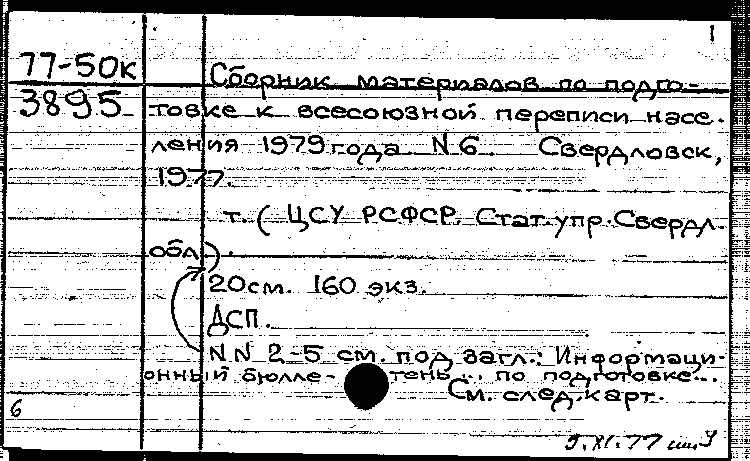 1
77-50к
3895
Сборник материалов по подго-
товке к всесоюзной переписи насе-
ления 1979 года N 6. Свердловск,
1977.
т. ( ЦСУ РСФСР. Стат. упр. Свердл.
обл.).
20 см. 160 экз.
ДСП.
N N 2-5 см. под загл.: Информаци-
онный бюлле- тень... по подготовке...
См. след. карт.
6
9.XI.77